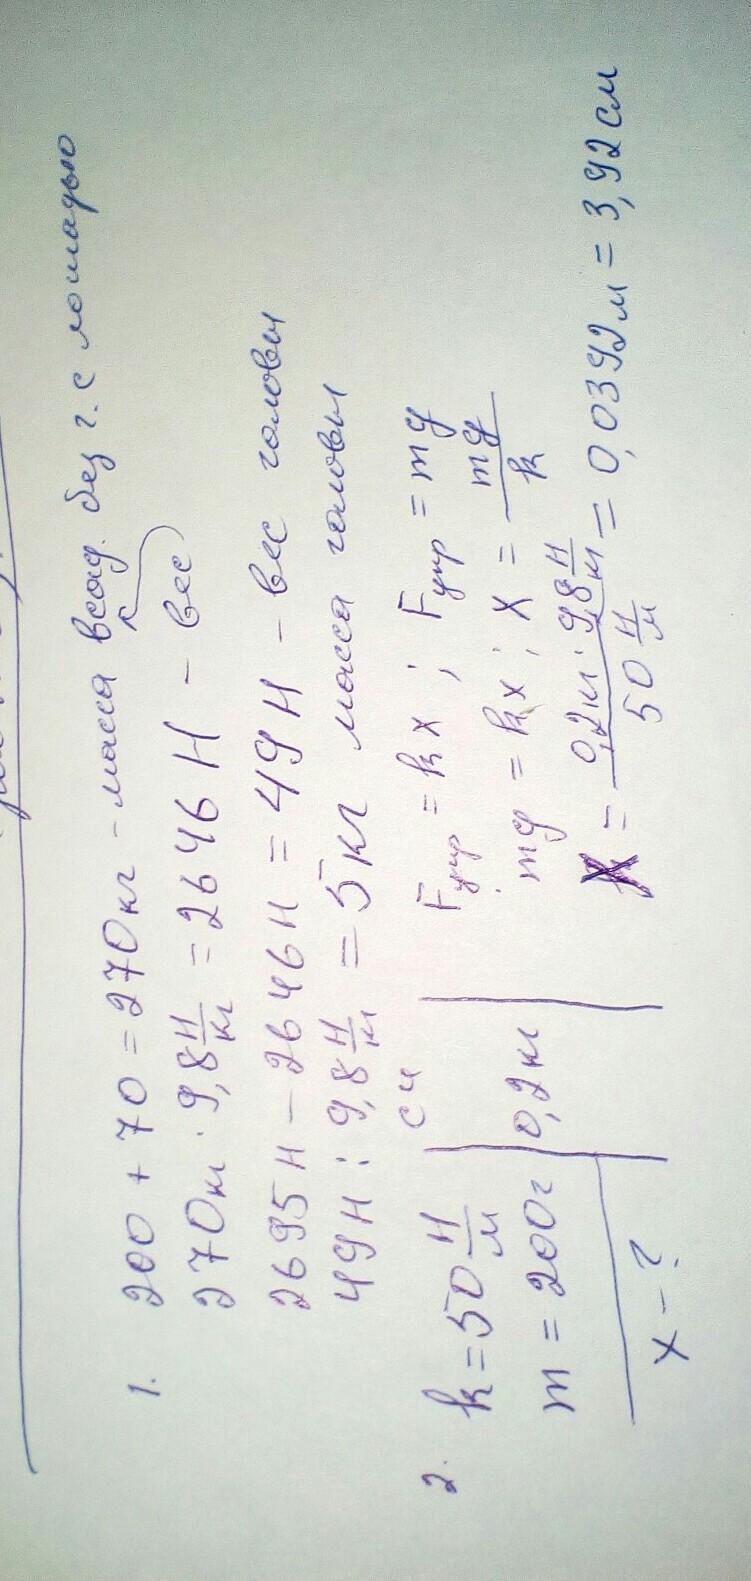 1. 200 + 70 = 270кг - масса всад. без г. с лошадью
270кг · 9,8 Н/кг = 2646 Н - вес
2695 Н - 2646 Н = 49 Н - вес головы
49 Н : 9,8 Н/кг = 5 кг масса головы
2. k = 50 Н/м
m = 200г
x - ?
СИ
0,2кг
Fупр = kx ; Fупр = mg
mg = kx ; x = mg/k
x = 0,2кг · 9,8 Н/кг / 50 Н/м = 0,0392 м = 3,92 см